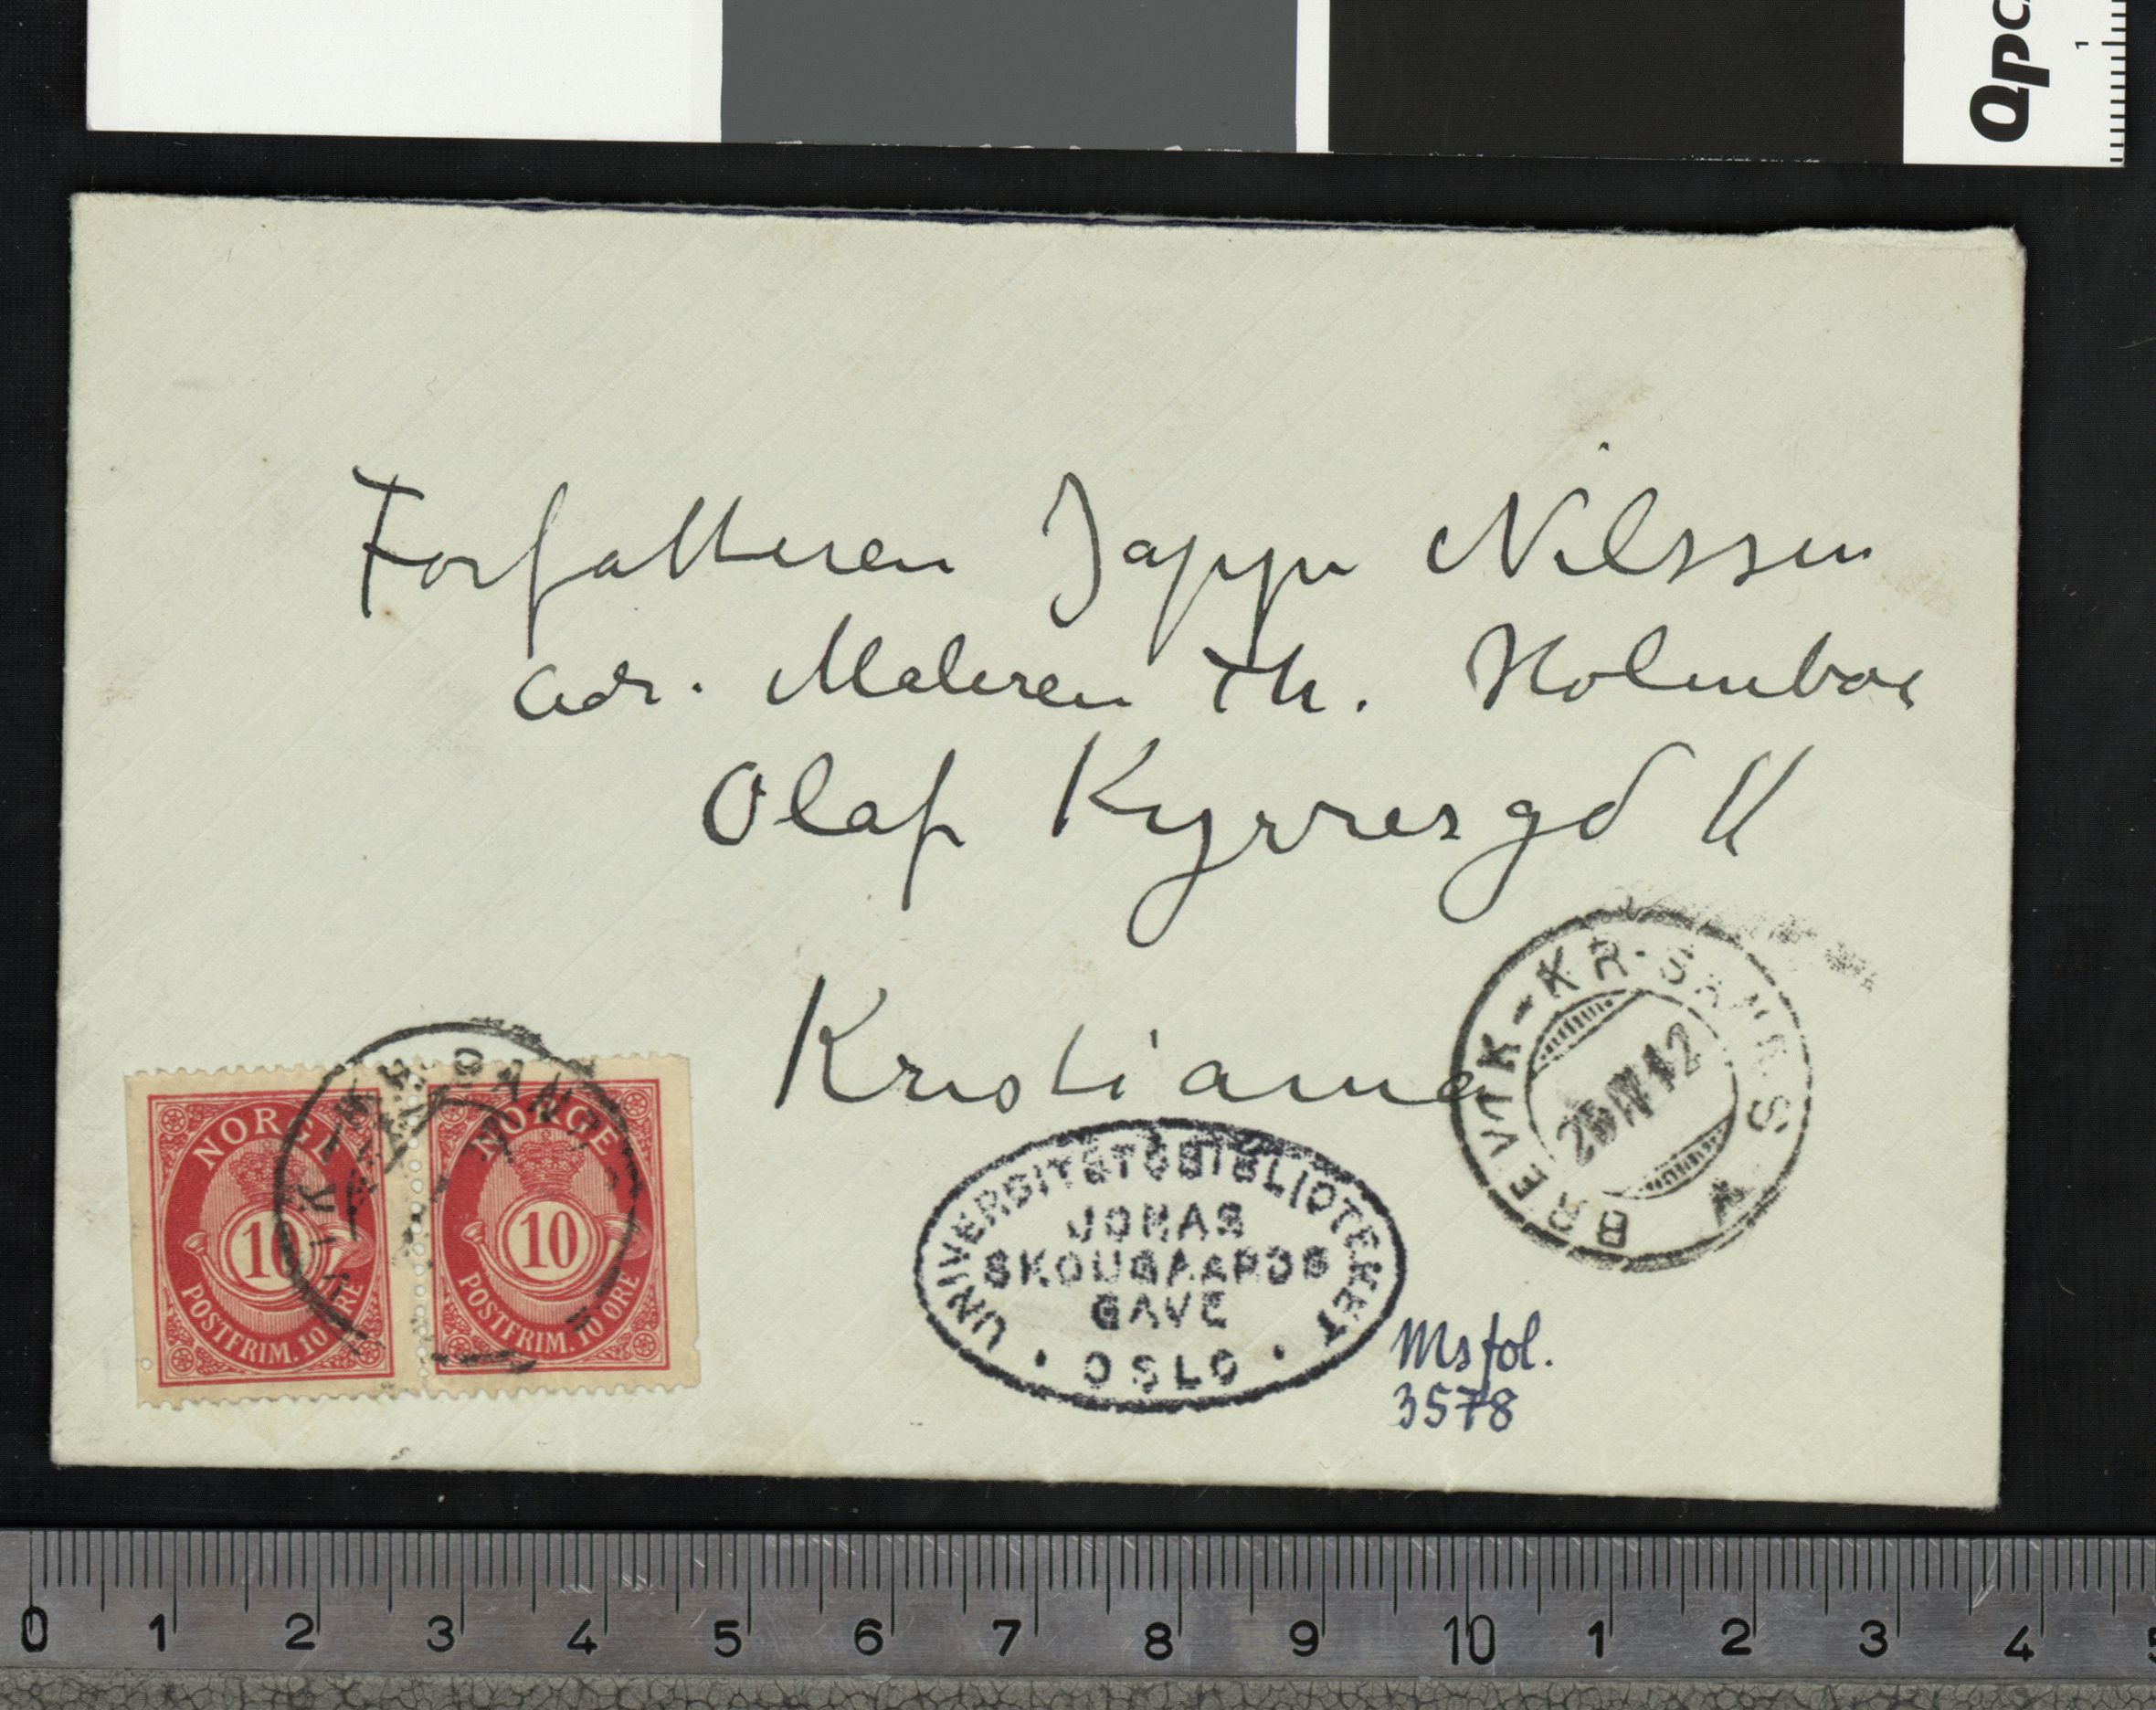 Forfatteren Jappe Nilssen
adr. Maleren Th. Holmboe
Olaf Kyrresgd 11
Kristiania
BREVIK-KR.SANDS A
25 IV 12
NORGE
10
POSTFRIM. 10 ØRE
NORGE
10
POSTFRIM. 10 ØRE
UNIVERSITETSBIBLIOTEKET
JONAS
SKOUGAARDS
GAVE
OSLO
Ms fol.
3578
0 1 2 3 4 5 6 7 8 9 10 1 2 3 4